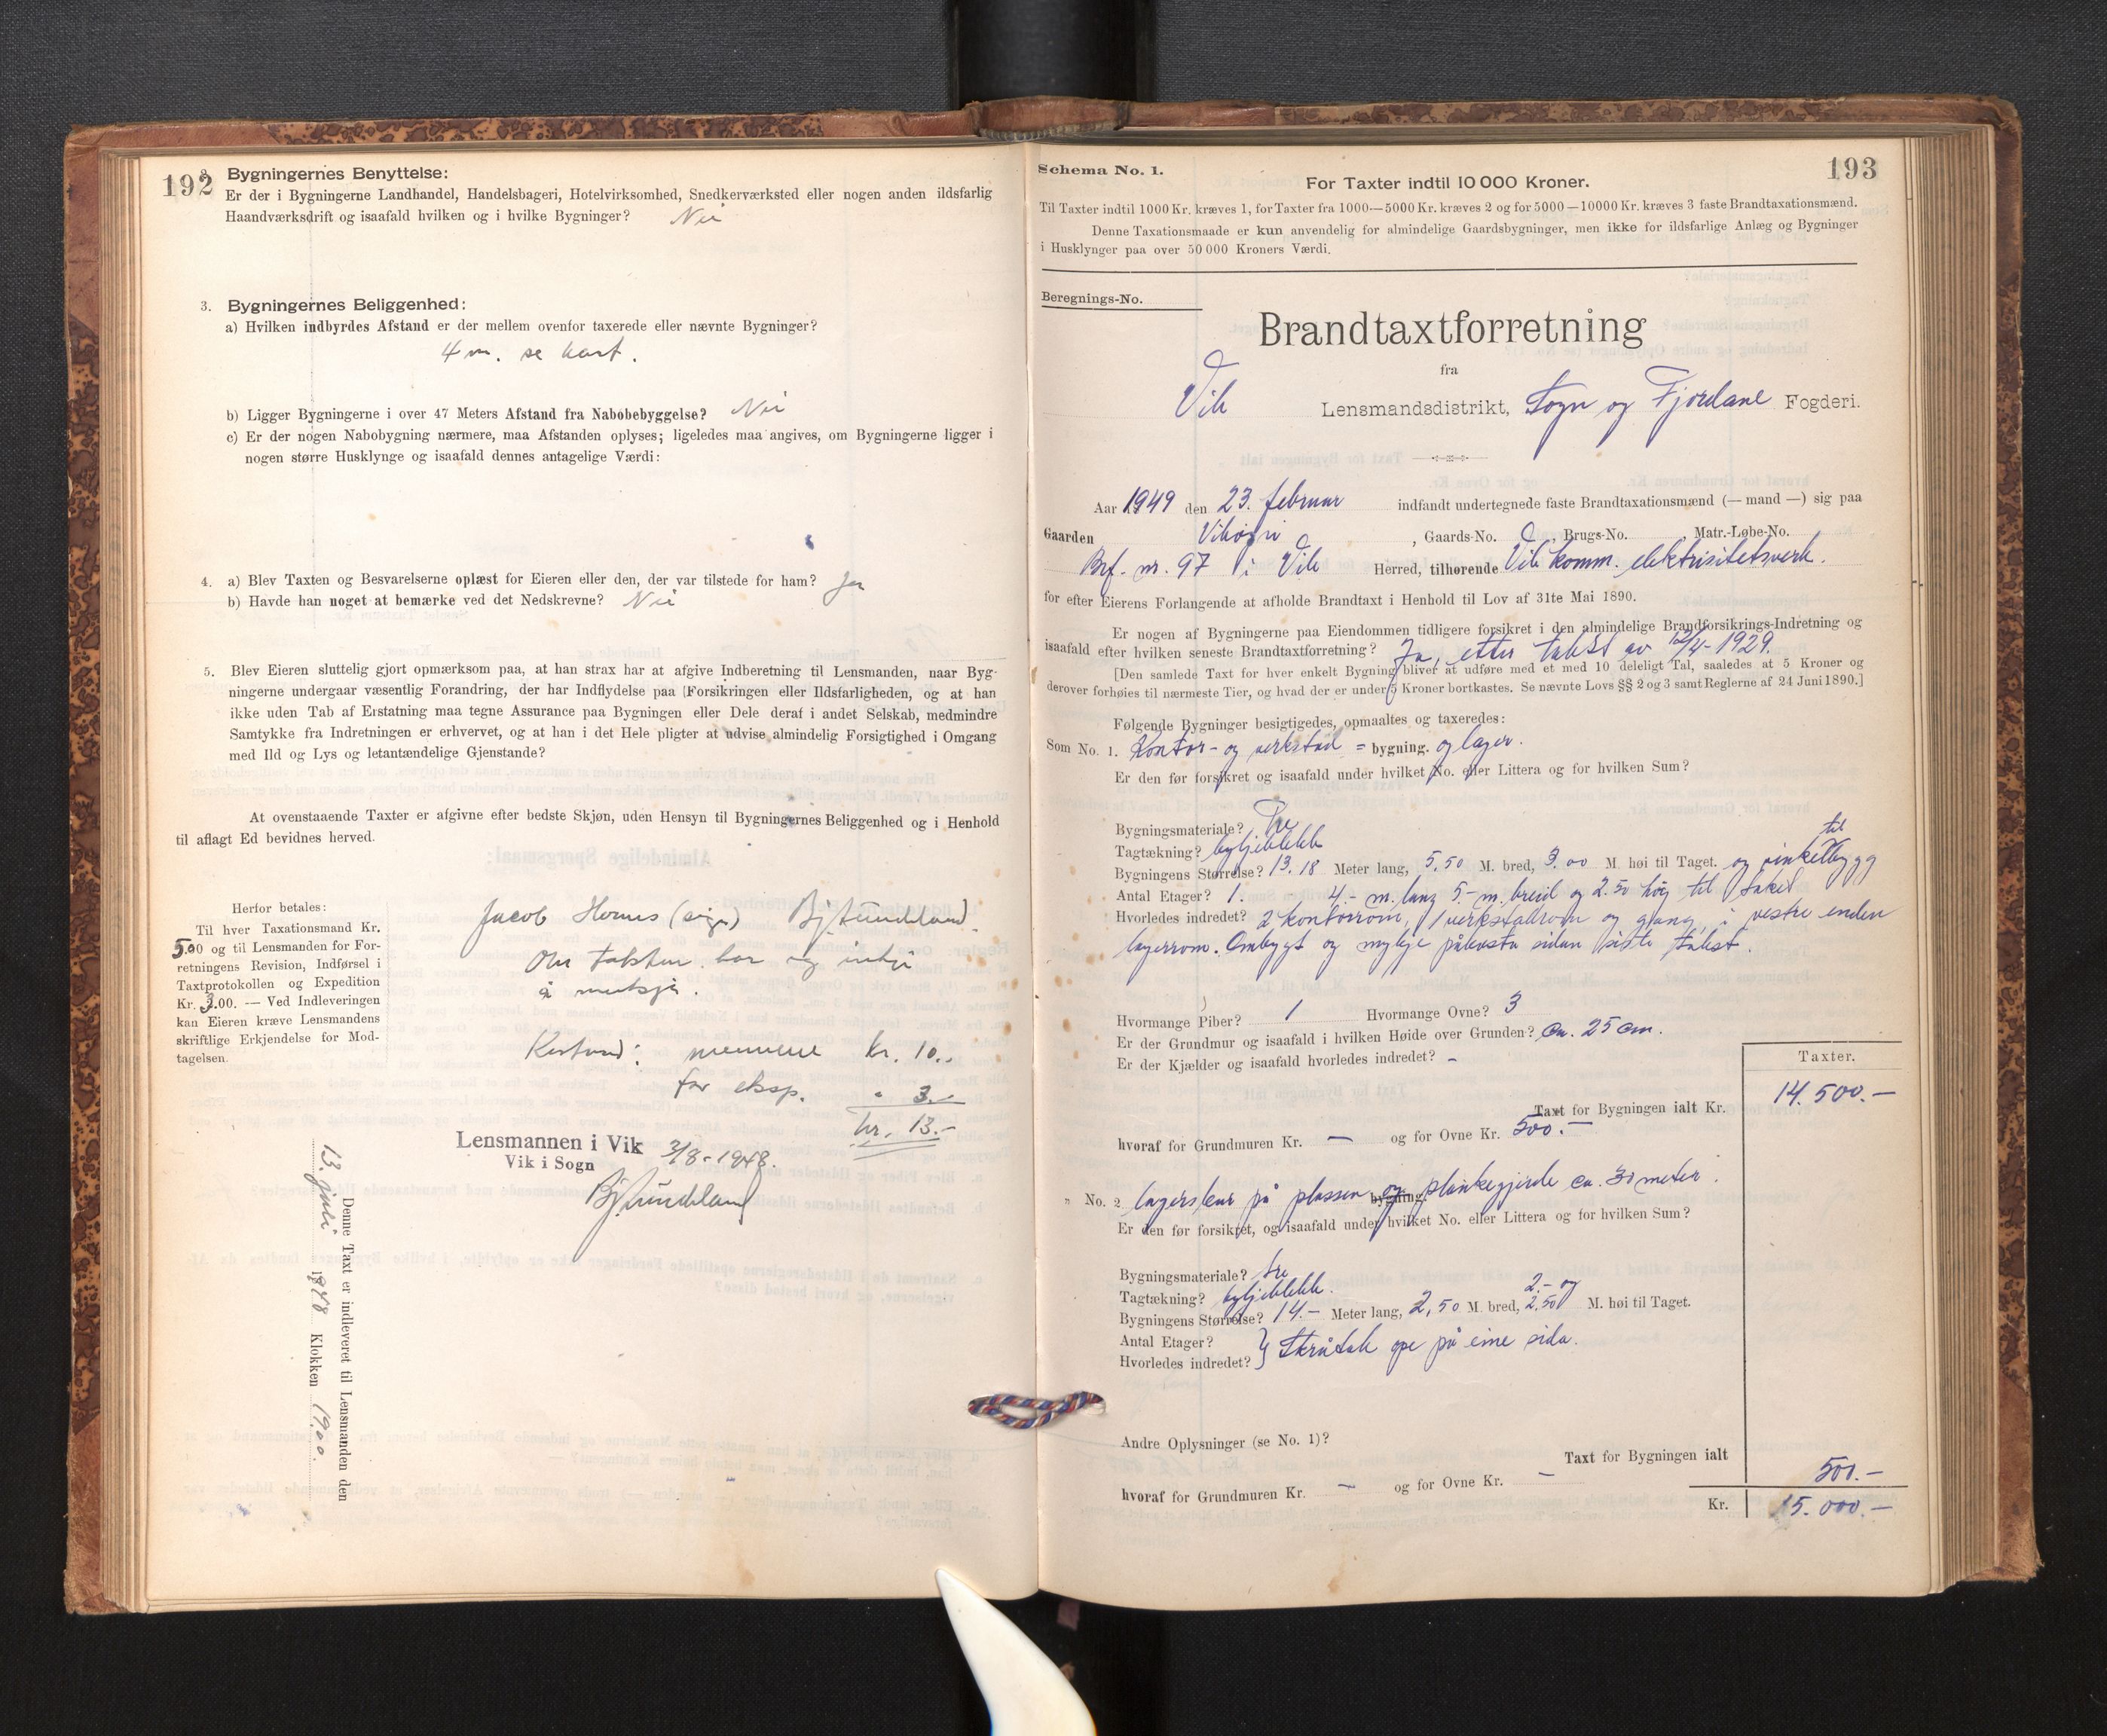 192
2. Bygningernes Benyttelse:
Er der i Bygningerne Landhandel, Handelsbageri, Hotelvirksomhed, Snedkerværksted eller nogen anden ildsfarlig
Haandværksdrift og isaafald hvilken og i hvilke Bygninger? Nei
3. Bygningernes Beliggenhed:
a) Hvilken indbyrdes Afstand er der mellem ovenfor taxerede eller nævnte Bygninger?
4 m. se kart.
b) Ligger Bygningerne i over 47 Meters Afstand fra Nabobebyggelse? Nei
c) Er der nogen Nabobygning nærmere, maa Afstanden oplyses; ligeledes maa angives, om Bygningerne ligger i
nogen større Husklynge og isaafald dennes antagelige Værdi:
4. a) Blev Taxten og Besvarelserne oplæst for Eieren eller den, der var tilstede for ham? Ja
b) Havde han noget at bemærke ved det Nedskrevne? Nei
5. Blev Eieren sluttelig gjort opmærksom paa, at han strax har at afgive Indberetning til Lensmanden, naar Byg-
ningerne undergaar væsentlig Forandring, der har Indflydelse paa Forsikringen eller Ildsfarligheden, og at han
ikke uden Tab af Erstatning maa tegne Assurance paa Bygningen eller Dele deraf i andet Selskab, medmindre
Samtykke fra Indretningen er erhvervet, og at han i det Hele pligter at udvise almindelig Forsigtighed i Omgang
med Ild og Lys og letantændelige Gjenstande?
At ovenstaaende Taxter er afgivne efter bedste Skjøn, uden Hensyn til Bygningernes Beliggenhed og i Henhold
til aflagt Ed bevidnes herved.
Jacob Hovns (sign)
Herfor betales:
Til hver Taxationsmand Kr.
5.00 og til Lensmanden for For-
retningens Revision, Indførsel i
Taxtprotokollen og Expedition
Kr. 3.00. — Ved Indleveringen
kan Eieren kræve Lensmandens
skriftlige Erkjendelse for Mod-
tagelsen.
taksten har eg inkje
å merkja.
Kostnad: mennene kr. 10.-
for eksp. " 3.-
kr. 13.-
Lensmannen i Vik 3/8-1948.
Vik i Sogn
Denne Taxt er indleveret til Lensmanden den
13. juli 1948 Klokken 19.00.
193
Schema No. 1.
For Taxter indtil 10 000 Kroner.
Til Taxter indtil 1000 Kr. kræves 1, for Taxter fra 1000—5000 Kr. kræves 2 og for 5000—10000 Kr. kræves 3 faste Brandtaxationsmænd.
Denne Taxationsmaade er kun anvendelig for almindelige Gaardsbygninger, men ikke for ildsfarlige Anlæg og Bygninger
i Husklynger paa over 50 000 Kroners Værdi.
Beregnings-No.
Brandtaxtforretning
fra
Vik Lensmandsdistrikt, Sogn og Fjordane Fogderi.
Aar 1949 den 23. februar indfandt undertegnede faste Brandtaxationsmænd (— mand —) sig paa
Gaarden Vikøyri, Gaards-No. , Brugs-No. , Matr.-Løbe-No.
Brf. nr. 97 i Vik Herred, tilhørende Vik komm. elektrisitetsverk.
for efter Eierens Forlangende at afholde Brandtaxt i Henhold til Lov af 31te Mai 1890.
Er nogen af Bygningerne paa Eiendommen tidligere forsikret i den almindelige Brandforsikrings-Indretning og
isaafald efter hvilken seneste Brandtaxtforretning? Ja, etter takst av 12/4-1929.
[Den samlede Taxt for hver enkelt Bygning bliver at udføre med et med 10 deleligt Tal, saaledes at 5 Kroner og
derover forhøies til nærmeste Tier, og hvad der er under 5 Kroner bortkastes. Se nævnte Lovs §§ 2 og 3 samt Reglerne af 24 Juni 1890.]
Følgende Bygninger besigtigedes, opmaaltes og taxeredes:
Som No. 1. Kontor- og verkstad = bygning. og lager.
Er den før forsikret og isaafald under hvilket No. eller Littera og for hvilken Sum?
Bygningsmateriale? Tre
Tagtækning? bylgjeblekk
Bygningens Størrelse? 13.18 Meter lang, 5.50 M. bred, 3.00 M. høi til Taget. og vinkeltilbygg
Antal Etager? 1. 4.- m. lang 5.- m. breid og 2.50 høg til taket
Hvorledes indredet? 2 kontorrom, 1 verkstadrom og gang, i vestre enden
lagerrom. Ombygt og mykje påkosta sidan siste takst.
Hvormange Piber? 1 Hvormange Ovne? 3
Er der Grundmur og isaafald i hvilken Høide over Grunden? Ca. 25 cm.
Er der Kjælder og isaafald hvorledes indredet? -
Taxter.
Taxt for Bygningen ialt Kr. 14.500.-
hvoraf for Grundmuren Kr. — og for Ovne Kr. 500.-
" No. 2 lagerskur på plassen og bygning. plankegjerde ca. 30 meter.
Er den før forsikret, og isaafald under hvilket No. eller Littera og for hvilken Sum?
Bygningsmateriale? tre
Tagtækning? bylgjeblekk.
Bygningens Størrelse? 14.- Meter lang, 2,50 M. bred, 2.- og 2.50 M. høi til Taget.
Antal Etager?
Hvorledes indredet? } Skråtak ope på eine sida.
Andre Oplysninger (se No. 1)?
Taxt for Bygningen ialt 500.-
hvoraf for Grundmuren Kr. — og for Ovne Kr. —
Kr. 15.000.-